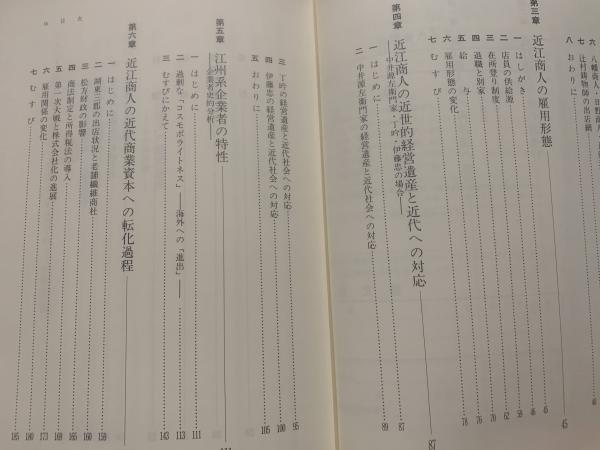 六 八幡商人・日野商人
七 辻村鋳物師の出店鍋
八 おわりに 45
第三章 近江商人の雇用形態
一 はしがき 46
二 店員の供給源
三 在所登り制度 62
四 退職と別家 70
五 給与 76
六 雇用形態の変化 78
七 むすび
第四章 近江商人の近世的経営遺産と近代への対応 87
――中井源左衛門家・丁吟・伊藤忠の場合――
一 はじめに 87
二 中井源左衛門家の経営遺産と近代社会への対応 89
三 丁吟の経営遺産と近代社会への対応 95
四 伊藤忠の経営遺産と近代社会への対応 100
五 おわりに 105
第五章 江州系企業者の特性 111
――企業者史的分析――
一 はじめに 111
二 過剰な「コスモポライトネス」――海外への「進出」―― 113
三 むすびにかえて 143
第六章 近江商人の近代商業資本への転化過程
一 はじめに 159
二 湖東三郡の出店状況と老舗繊維商社 160
三 松方財政の影響 165
四 商法制定と所得税法の導入 169
五 第一次大戦と株式会社化の進展 173
六 雇用関係の変化 180
七 むすび 185
目次